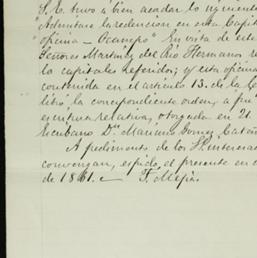 S. E. tuvo á bien acordar lo siguiente
"Admitase la redencion en esta Capit
"oficina — Ocampo" En vista de este
Señores Martinez del Rio Hermanos re
los capitales referidos; y esta oficina
contenida en el articulo 13. de la L
libró la correspondiente orden, a fin
escritura relativa, otorgada en 21
Escribano Dn. Mariano Gomez
A pedimento de los SS. interesad
convengan, espido el presente en
de 1861. F. Mejia